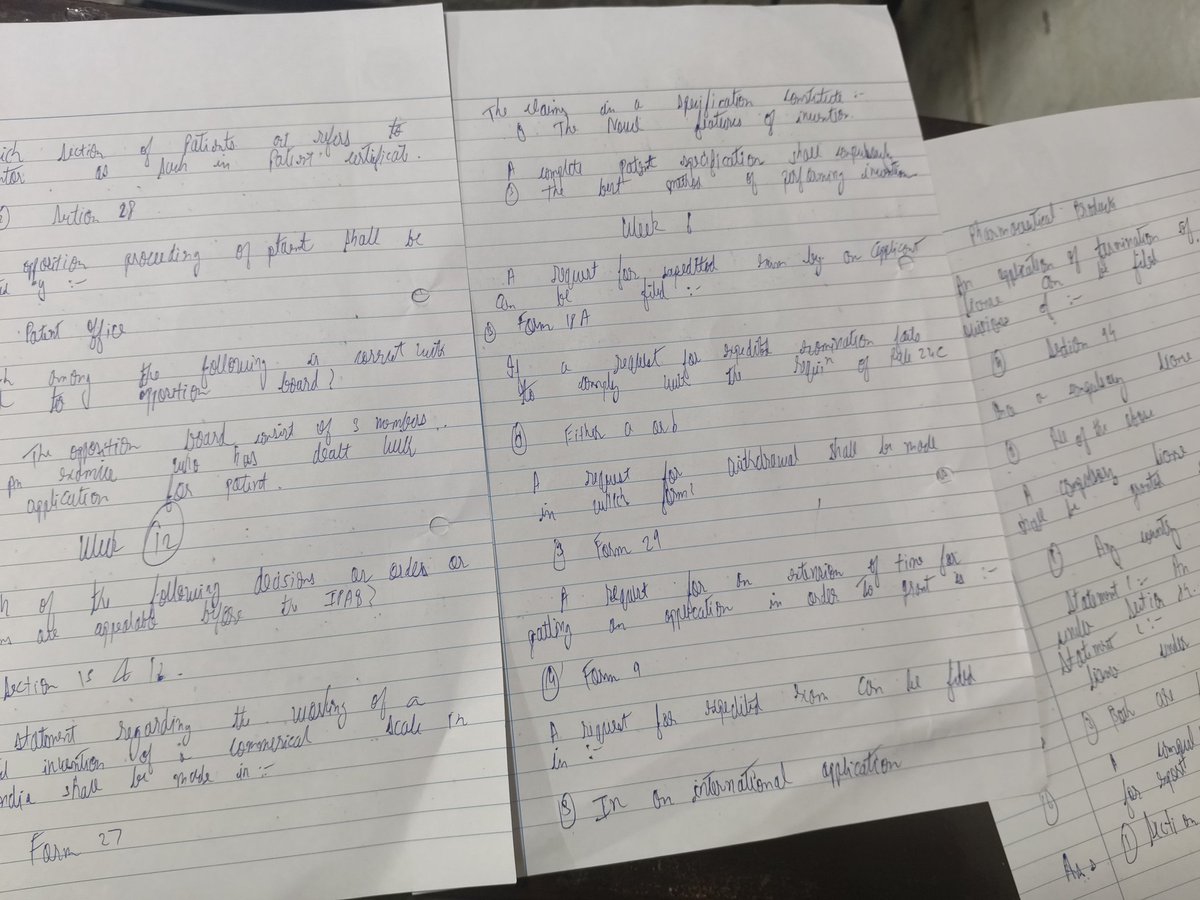 ich section of Patients act refers to
ntor as such in Patent certificat.
Section 28
opposition proceeding of ptaent shall be
y :-
Patent office
h among the following is correct with
to opposition board?
The opposition board consist of 3 members..
An who has dealt with
application for patent.
Week 12
h of the following decisions or orders or
ns are appealable before the IPAB?
Section 15 & 16.
Statement regarding the working of a
d invention of a commerical scale in
ndia shall be made in :-
Form 27
The claims in a specification constitute :-
The Novel features of invention
A complete patent specification shall
The best of performing invention
Week 8
A request for expedited exam by an applicant
can be filed :-
Form 18A
If a request for expedited examination fails
to comply with the requi^n of Rule 24C
Either a or b
A request for withdrawal shall be made
in which form?
3 Form 29
A request for an extension of time for
putting an application in order to grant is :-
4 Form 4
A request for expedited exam can be filed
in :-
In an international application
Pharmaceutical Products
An application of termination of
can be filed
of :-
Section 94
a compulsory
All of the above
A compulsory
shall be granted
Any country
Statement 1 :- An
under section
Statement 2 :-
under
Both are
A
for export
Ans
1 Section